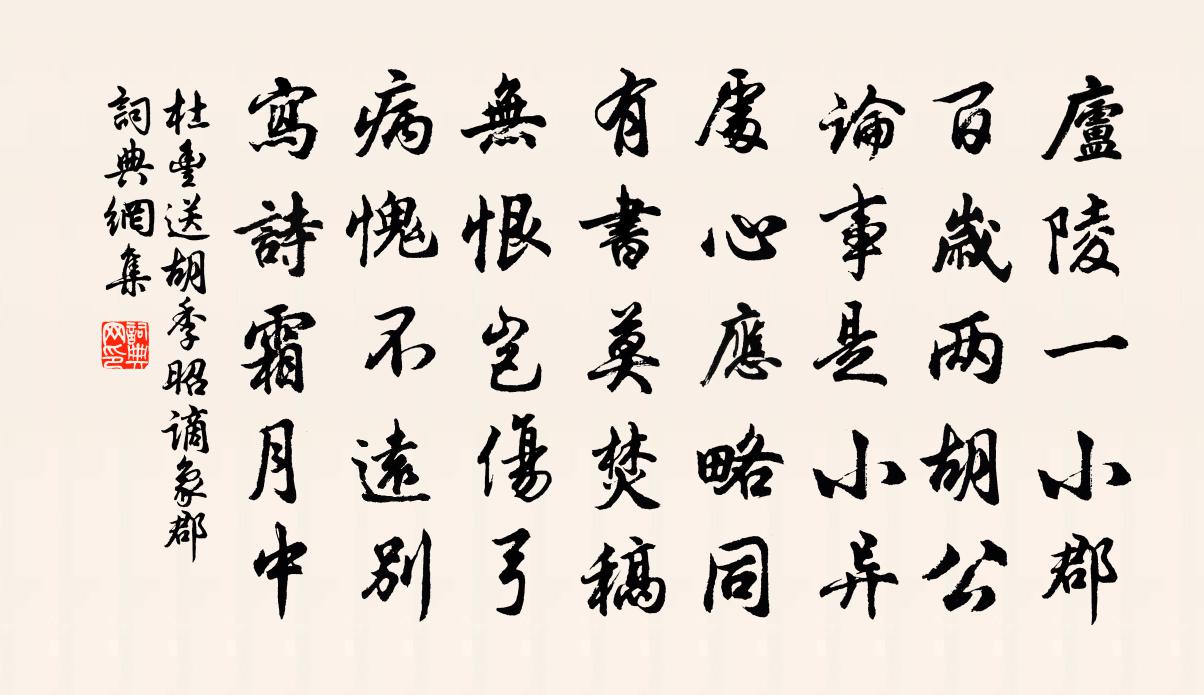 廬陵一小郡
百歲两胡公
論事是小异
處心應略同
有書莫焚稿
無恨豈傷弓
病愧不遠別
寫詩霜月中
杜耒送胡季昭謫象郡
詞典網集
詞典网印